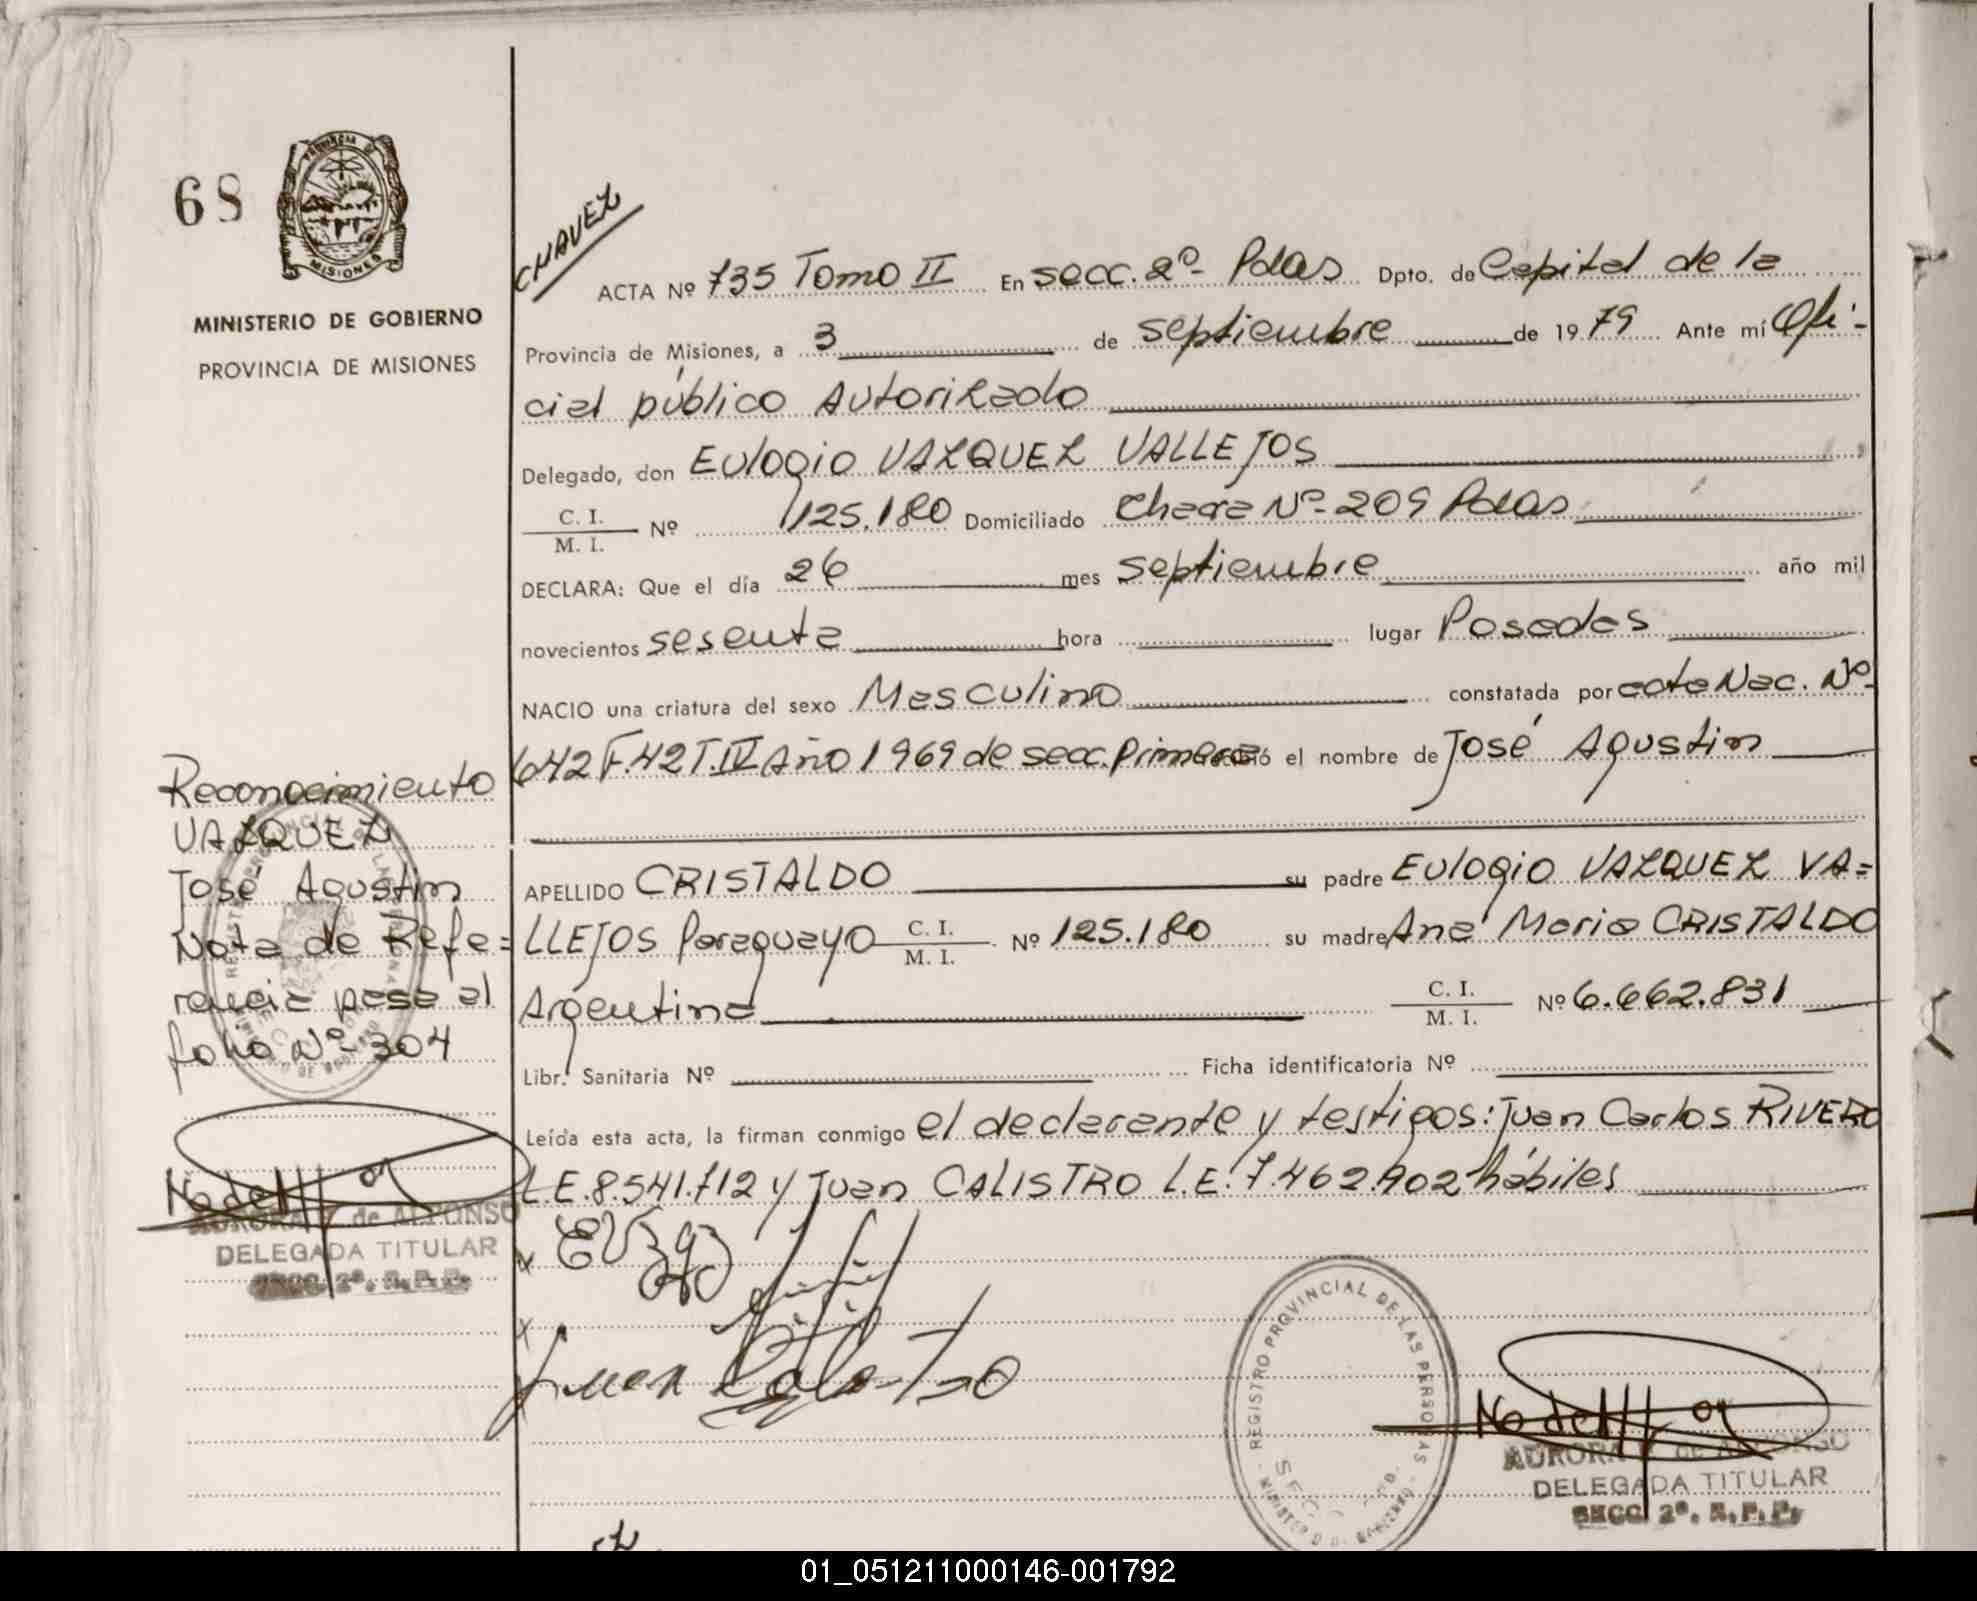 68
PROVINCIA DE
MISIONES
MINISTERIO DE GOBIERNO
PROVINCIA DE MISIONES
CHAVEZ
ACTA Nº 735 Tomo II En secc. 2º- Pdas Dpto. de Capital de la
Provincia de Misiones, a 3 de septiembre de 1979 Ante mí Ofi-
cial público Autorizado
Delegado, don Eulogio VAZQUEZ VALLEJOS
C. I.
M. I. Nº 125.180 Domiciliado Chara Nº- 209 Pdas
DECLARA: Que el día 26 mes septiembre año mil
novecientos sesenta hora lugar Posadas
NACIO una criatura del sexo Masculino constatada por acta Nac. Nº-
642 F.42 T.IV Año 1969 de secc. primera el nombre de José Agustin
APELLIDO CRISTALDO su padre Eulogio VAZQUEZ VA=
LLEJOS Paraguayo C. I. M. I. Nº 125.180 su madre Ana Maria CRISTALDO
Argentina C. I. M. I. Nº 6.662.831
Libr. Sanitaria Nº Ficha identificatoria Nº
Leída esta acta, la firman conmigo el declarante y testigos: Juan Carlos RIVERO
L.E. 8.541.712 y Juan CALISTRO L.E. 7.462.902 hábiles
Reconocimiento
VAZQUEZ
José Agustin
Nota de Refe=
rencia pasa al
folio Nº- 304
AURORA de ALFONSO
DELEGADA TITULAR
SECC. 2ª. R.P.P.
Juan
REGISTRO PROVINCIAL DE LAS PERSONAS
AURORA de ALFONSO
DELEGADA TITULAR
SECC. 2ª. R.P.P.
01_051211000146-001792